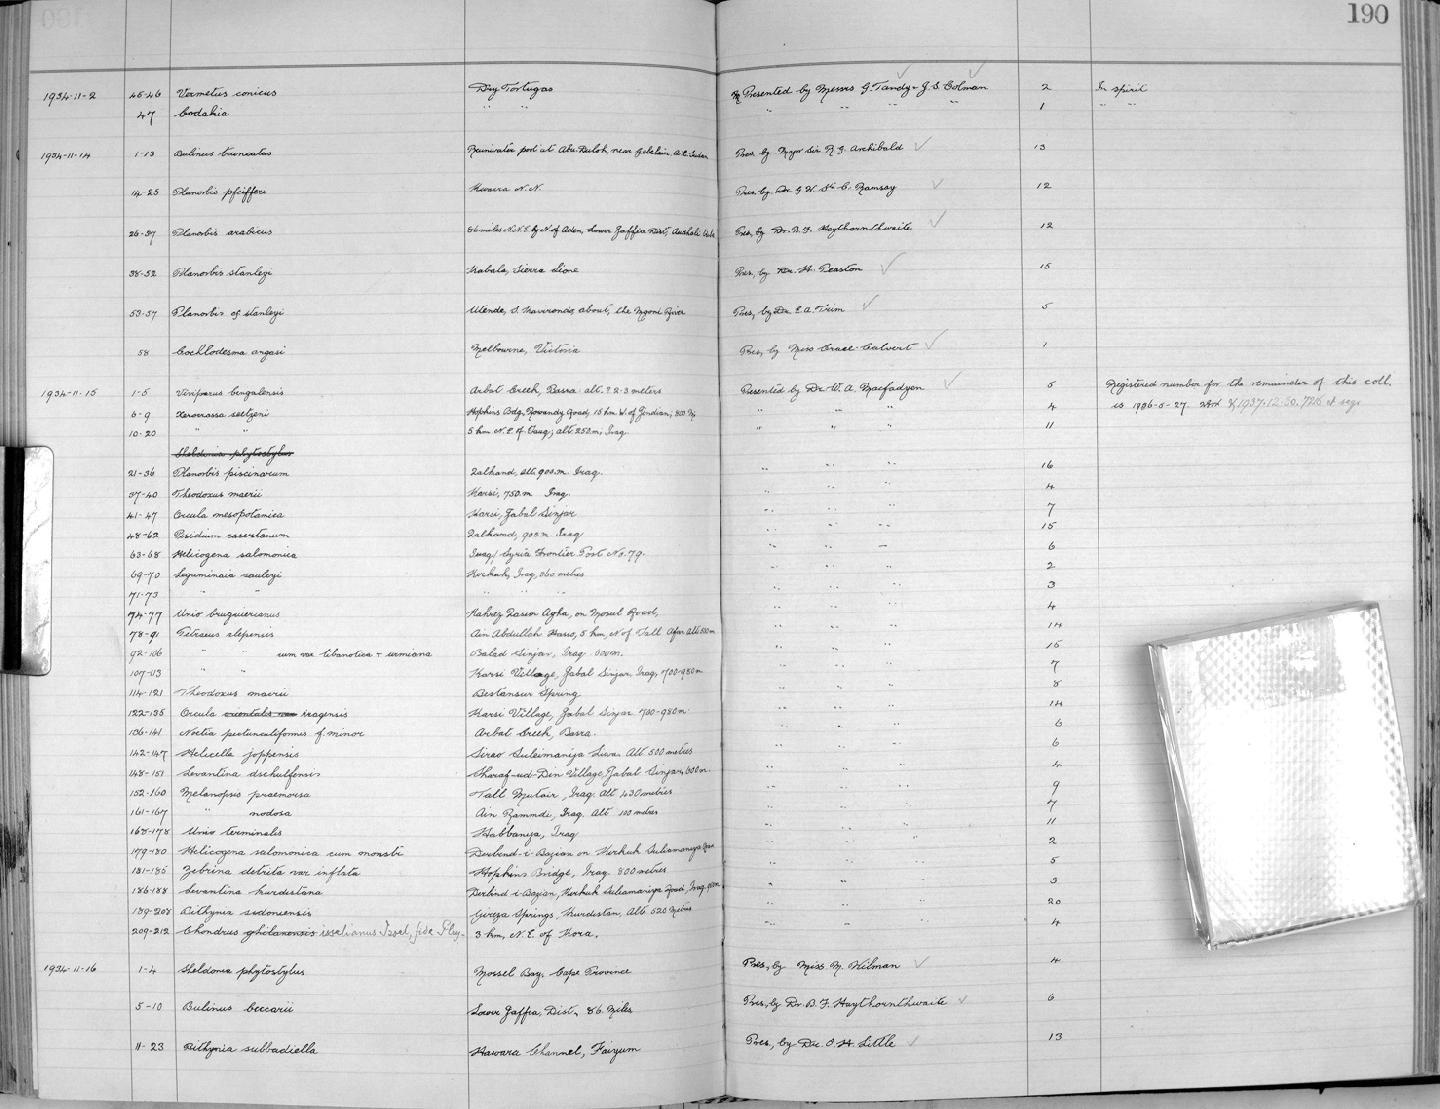 190
1934-11-2 45-46 Vermetus conicus Dry Tortugas Presented by Messrs G. Tandy & J. S. Colman 2 In spirit
47 Codakia " " " " " " 1 " "
1934-11-14 1-13 Bulinus truncatus Rainwater pool at Abu near A.E. Sudan Pres. by Major Sir R. G. Archibald 13
14-25 Planorbis pfeifferi N.N. Pres. by Dr. G. W. St. C. Ramsay 12
26-37 Planorbis arabicus 86 miles N.N.E. by N of Aden, Lower Jaffia Dist, Pres, by Dr. B. F. Haythornthwaite 12
38-52 Planorbis stanleyi Kabala, Sierra Lione Pres, by Dr. H. Peaston 15
53-57 Planorbis cf stanleyi Utende, S. Kavirondo, about, the Mgoni River Pres, by Dr. E. A. Trim 5
58 Cochlodesma angasi Melbourne, Victoria Pres, by Miss Grace Calvert 1
1934-11-15 1-5 Viviparus bengalensis Arbat Creek, Basra. alt. ? 2-3 meters Presented by Dr. W. A. Macfadyen 5 Registered number for the remainder of this coll.
6-9 Xerocrassa seetzeni Hopkins Bdg, Rowandy Road, 15 km W. of Zindian; 800 M " " " 4 is 1936-5-27. & 1937.12.30.726 et seqs
10-20 " " 5 km N.E. of Tauq; alt. 250 m; Iraq. " " " 11
Sheldonia phytostylus
21-36 Planorbis piscinarum Zalhand, alt. 900.m. Iraq. " " " 16
37-40 Theodoxus macrii Karsi, 750.m Iraq. " " " 4
41-47 Orcula mesopotamica Karsi, Jabal Sinjar " " " 7
48-62 Pisidium casertanum Zalhand, 900 m. Iraq " " " 15
63-68 Helicogena salomonica Iraq/Syria Frontier Post No. 79. " " " 6
69-70 Leguminaia saulcyi Kirkuk, Iraq, 360 metres " " " 2
71-73 " " " " " " " " 3
74-77 Unio bruguierianus Kahrez Yasin Agha, on Mosul Road, " " " 4
78-91 Petraeus alepensis Ain Abdullah Harso, 5 km, N of Tall Afar Alt 500m " " " 14
92-106 " " cum var libanotica + urmiana Balad Sinjar, Iraq 500m. " " " 15
107-113 Karsi Village, Jabal Sinjar, Iraq, 700-980m " " " 7
114-121 Theodoxus macrii Bestansur Spring " " " 8
122-135 Orcula orientalis var iraqensis Karsi Village, Jabal Sinjar 700-980m. " " " 14
136-141 Noetia pectunculiformis f. minor Arbat Creek, Basra. " " " 6
142-147 Helicella joppensis Sirao Suleimaniya Liwa. Alt 500 metres " " " 6
148-151 Levantina dschulfensis Sharaf-ud-Din Village, Jabal Sinjar, 600m. " " " 4
152-160 Melanopsis praemorsa Tall Mutair, Iraq. Alt 430 metres " " " 9
161-167 " nodosa Ain Rammdi, Iraq. Alt 100 metres " " " 7
168-178 Unio terminalis Habbaniya, Iraq " " " 11
179-180 Helicogena salomonica cum monstr. Derbend-i-Bazian on Kirkuk Suliamaniya Road " " " 2
181-185 Zebrina detrita var inflata Hopkins Bridge, Iraq. 800 metres " " " 5
186-188 Levantina kurdistana Derbend-i-Bazian, Kirkuk Suliamaniya Road, Iraq. " " " 3
189-208 Bithynia sidoniensis Girza Springs, Kurdistan, Alt. 520 Metres " " " 20
209-212 Chondrus ghilanensis isselianus Issel, fide Play- 3 km, N.E. of Kora. " " " 4
1934-11-16 1-4 Sheldonia phytostylus Mossel Bay, Cape Province Pres, by Miss. M. Wilman 4
5-10 Bulinus beccarii Lower Jaffia, Dist, 86 Miles Pres, by Dr. B. F. Haythornthwaite 6
11-23 Bithynia subbadiella Hawara Channel, Faiyum Pres, by Dr. O. H. Little 13